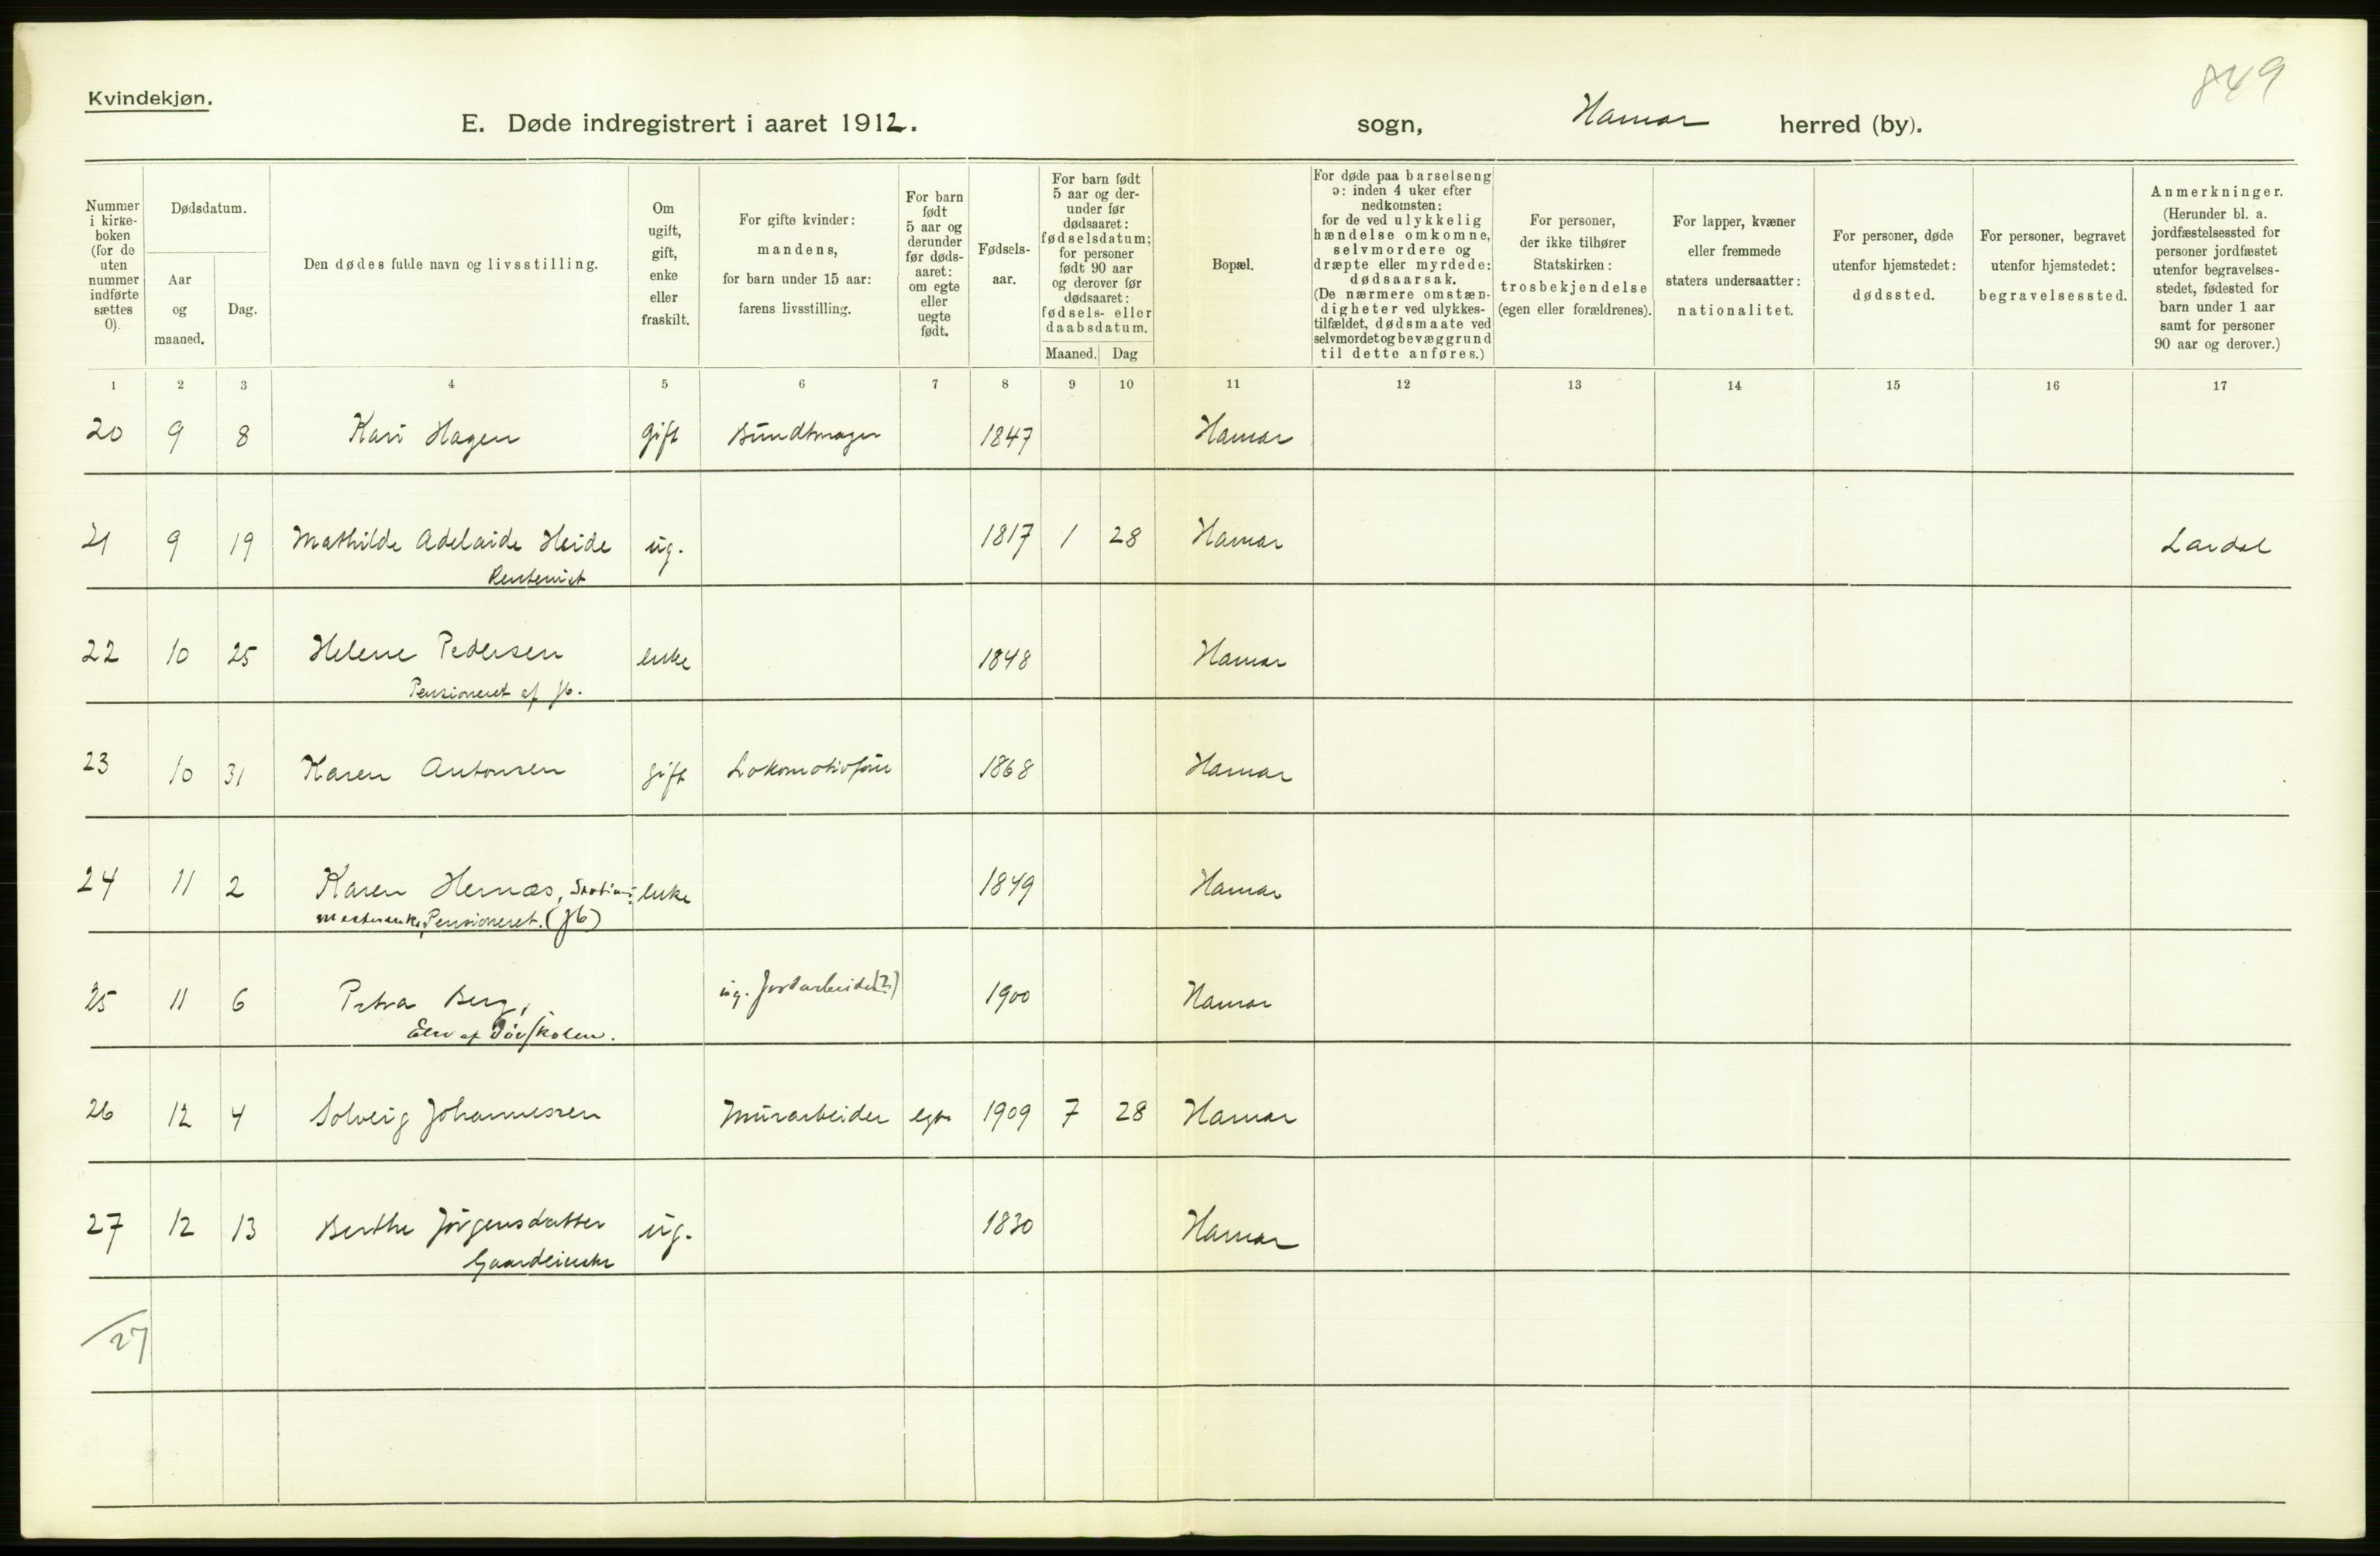 849
Kvindekjøn.
E. Døde indregistrert i aaret 1912. sogn, Hamar herred (by).
Nummer i kirke-boken (for de uten nummer indførte sættes 0).
Dødsdatum.
Aar og maaned.
Dag.
Den dødes fulde navn og livsstilling.
Om ugift, gift, enke eller fraskilt.
For gifte kvinder: mandens, for barn under 15 aar: farens livsstilling.
For barn født 5 aar og derunder før døds-aaret: om egte eller uegte født.
Fødsels-aar.
For barn født 5 aar og der-under før dødsaaret: fødselsdatum; for personer født 90 aar og derover før dødsaaret: fødsels- eller daabsdatum.
Maaned. Dag
Bopæl.
For døde paa barselseng ɔ: inden 4 uker efter nedkomsten: for de ved ulykkelig hændelse omkomne, selvmordere og dræpte eller myrdede: dødsaarsak. (De nærmere omstæn-digheter ved ulykkes-tilfældet, dødsmaate ved selvmordet og bevæggrund til dette anføres.)
For personer, der ikke tilhører Statskirken: trosbekjendelse (egen eller forældrenes).
For lapper, kvæner eller fremmede staters undersaatter: nationalitet.
For personer, døde utenfor hjemstedet: dødssted.
For personer, begravet utenfor hjemstedet: begravelsessted.
Anmerkninger. (Herunder bl. a. jordfæstelsessted for personer jordfæstet utenfor begravelses-stedet, fødested for barn under 1 aar samt for personer 90 aar og derover.)
1 2 3 4 5 6 7 8 9 10 11 12 13 14 15 16 17
20 9 8 Kari Hagen gift Bundtmager 1847 Hamar
21 9 19 Mathilde Adelaide Heide ug. 1817 1 28 Hamar Lardal
Rentenist
22 10 25 Helene Pedersen enke 1848 Hamar
Pensioneret af Jb.
23 10 31 Karen Antonsen gift Lokomotivfør 1868 Hamar
24 11 2 Karen Hernæs, Stations- enke 1849 Hamar
mesterenke, Pensioneret. (Jb)
25 11 6 Petra Berg, ug. Jordarbeider(?) 1900 Hamar
Elev af Døvskolen.
26 12 4 Solveig Johannessen Murarbeider egte 1909 7 28 Hamar
27 12 13 Berthe Jørgensdatter ug. 1830 Hamar
27